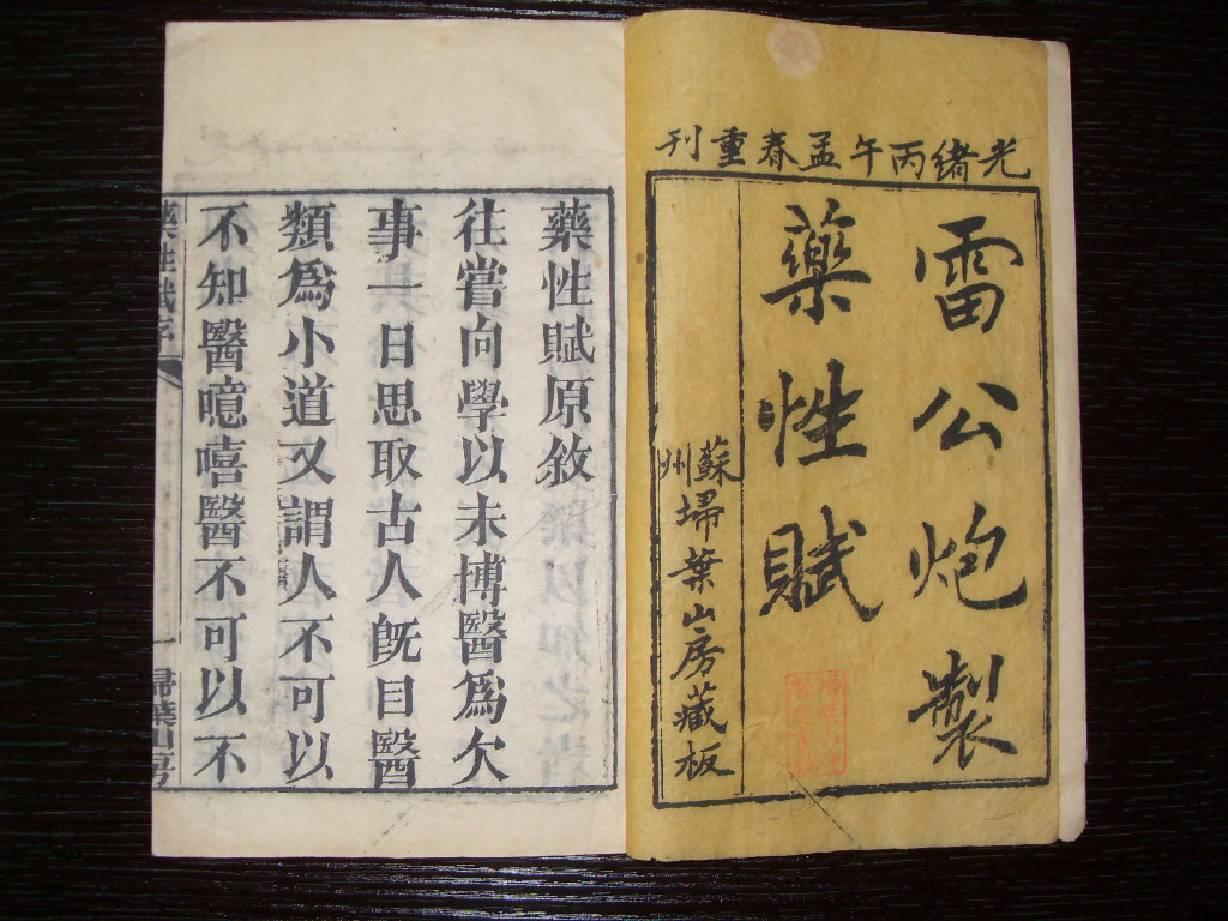 光緒丙午孟春重刊
雷公炮製
藥性賦
蘇州
埽葉山房藏板
藥性賦原敘
往嘗向學以未博醫爲欠
事一日思取古人旣目醫
類爲小道又謂人不可以
不知醫噫嘻醫不可以不
藥性賦序
一
埽葉山房